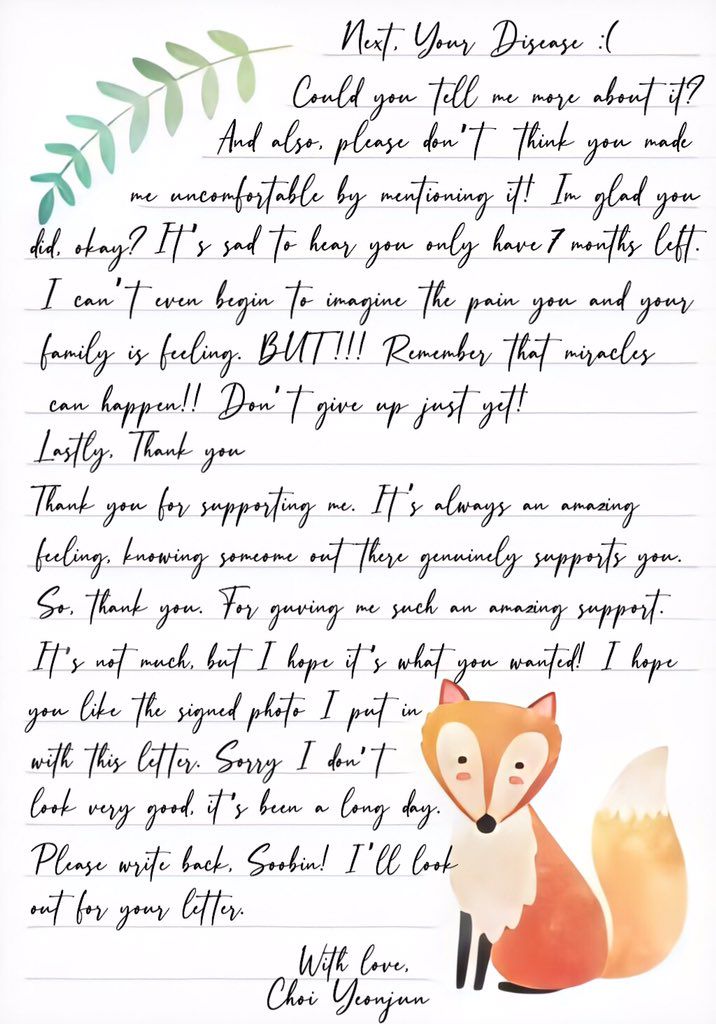 Next, Your Disease :(
Could you tell me more about it?
And also, please don't think you made
me uncomfortable by mentioning it! Im glad you
did, okay? It's sad to hear you only have 7 months left.
I can't even begin to imagine the pain you and your
family is feeling. BUT!!! Remember that miracles
can happen!! Don't give up just yet!
Lastly, Thank you
Thank you for supporting me. It's always an amazing
feeling, knowing someome out there genuinely supports you.
So, thank you. For guving me such an amazing support.
It's not much, but I hope it's what you wanted! I hope
you like the signed photo I put in
with this letter. Sorry I don't
look very good, it's been a long day.
Please write back, Soobin! I'll look
out for your letter.
With love,
Choi Yeonjun